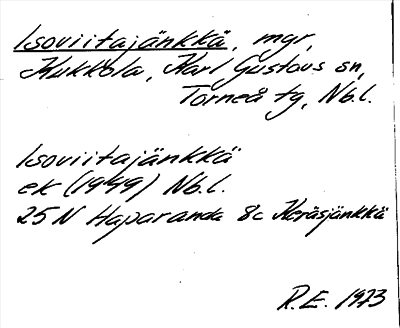 Isoviitajänkkä, mgr,
Kukkola, Karl Gustavs sn,
Torneå tg, Nb.l.
Isoviitajänkkä
ek (1949) Nb.l.
25 N Haparanda 8c Keräsjänkkä
R.E. 1973